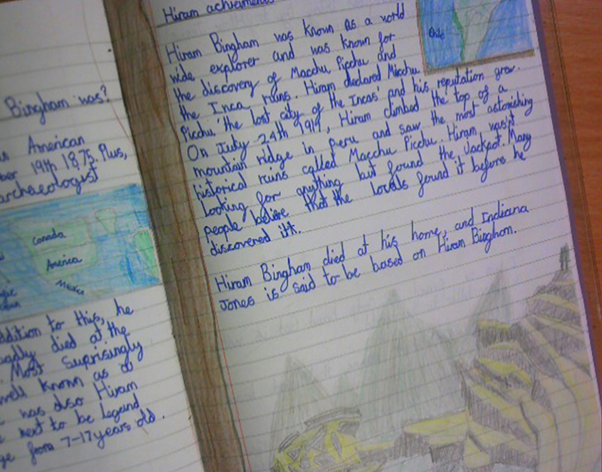 Bingham was?
American
19th 1875. Plus,
archaeologist
Canada
America
Mexico
addition to this, he
sadly died at the
Most surprisingly
well known as a
was also Hiram
next to be legend
from 7-17 years old.
Hiram achievments
Hiram Bingham was known as a world
wide explorer and was known for
the discovery of Macchu Picchu and
the Inca ruins. Hiram declared Macchu
Picchu 'the lost city of the Incas' and his reputation grew.
On July 24th 1919, Hiram climbed the top of a
mountain ridge in peru and saw the most astonishing
historical ruins called Macchu Picchu. Hiram wasn't
looking for anything but found the Jackpot. Many
people believe that the locals found it before he
discovered it.
Hiram Bingham died at his home, and Indiana
Jones is said to be based on Hiram Bingham.